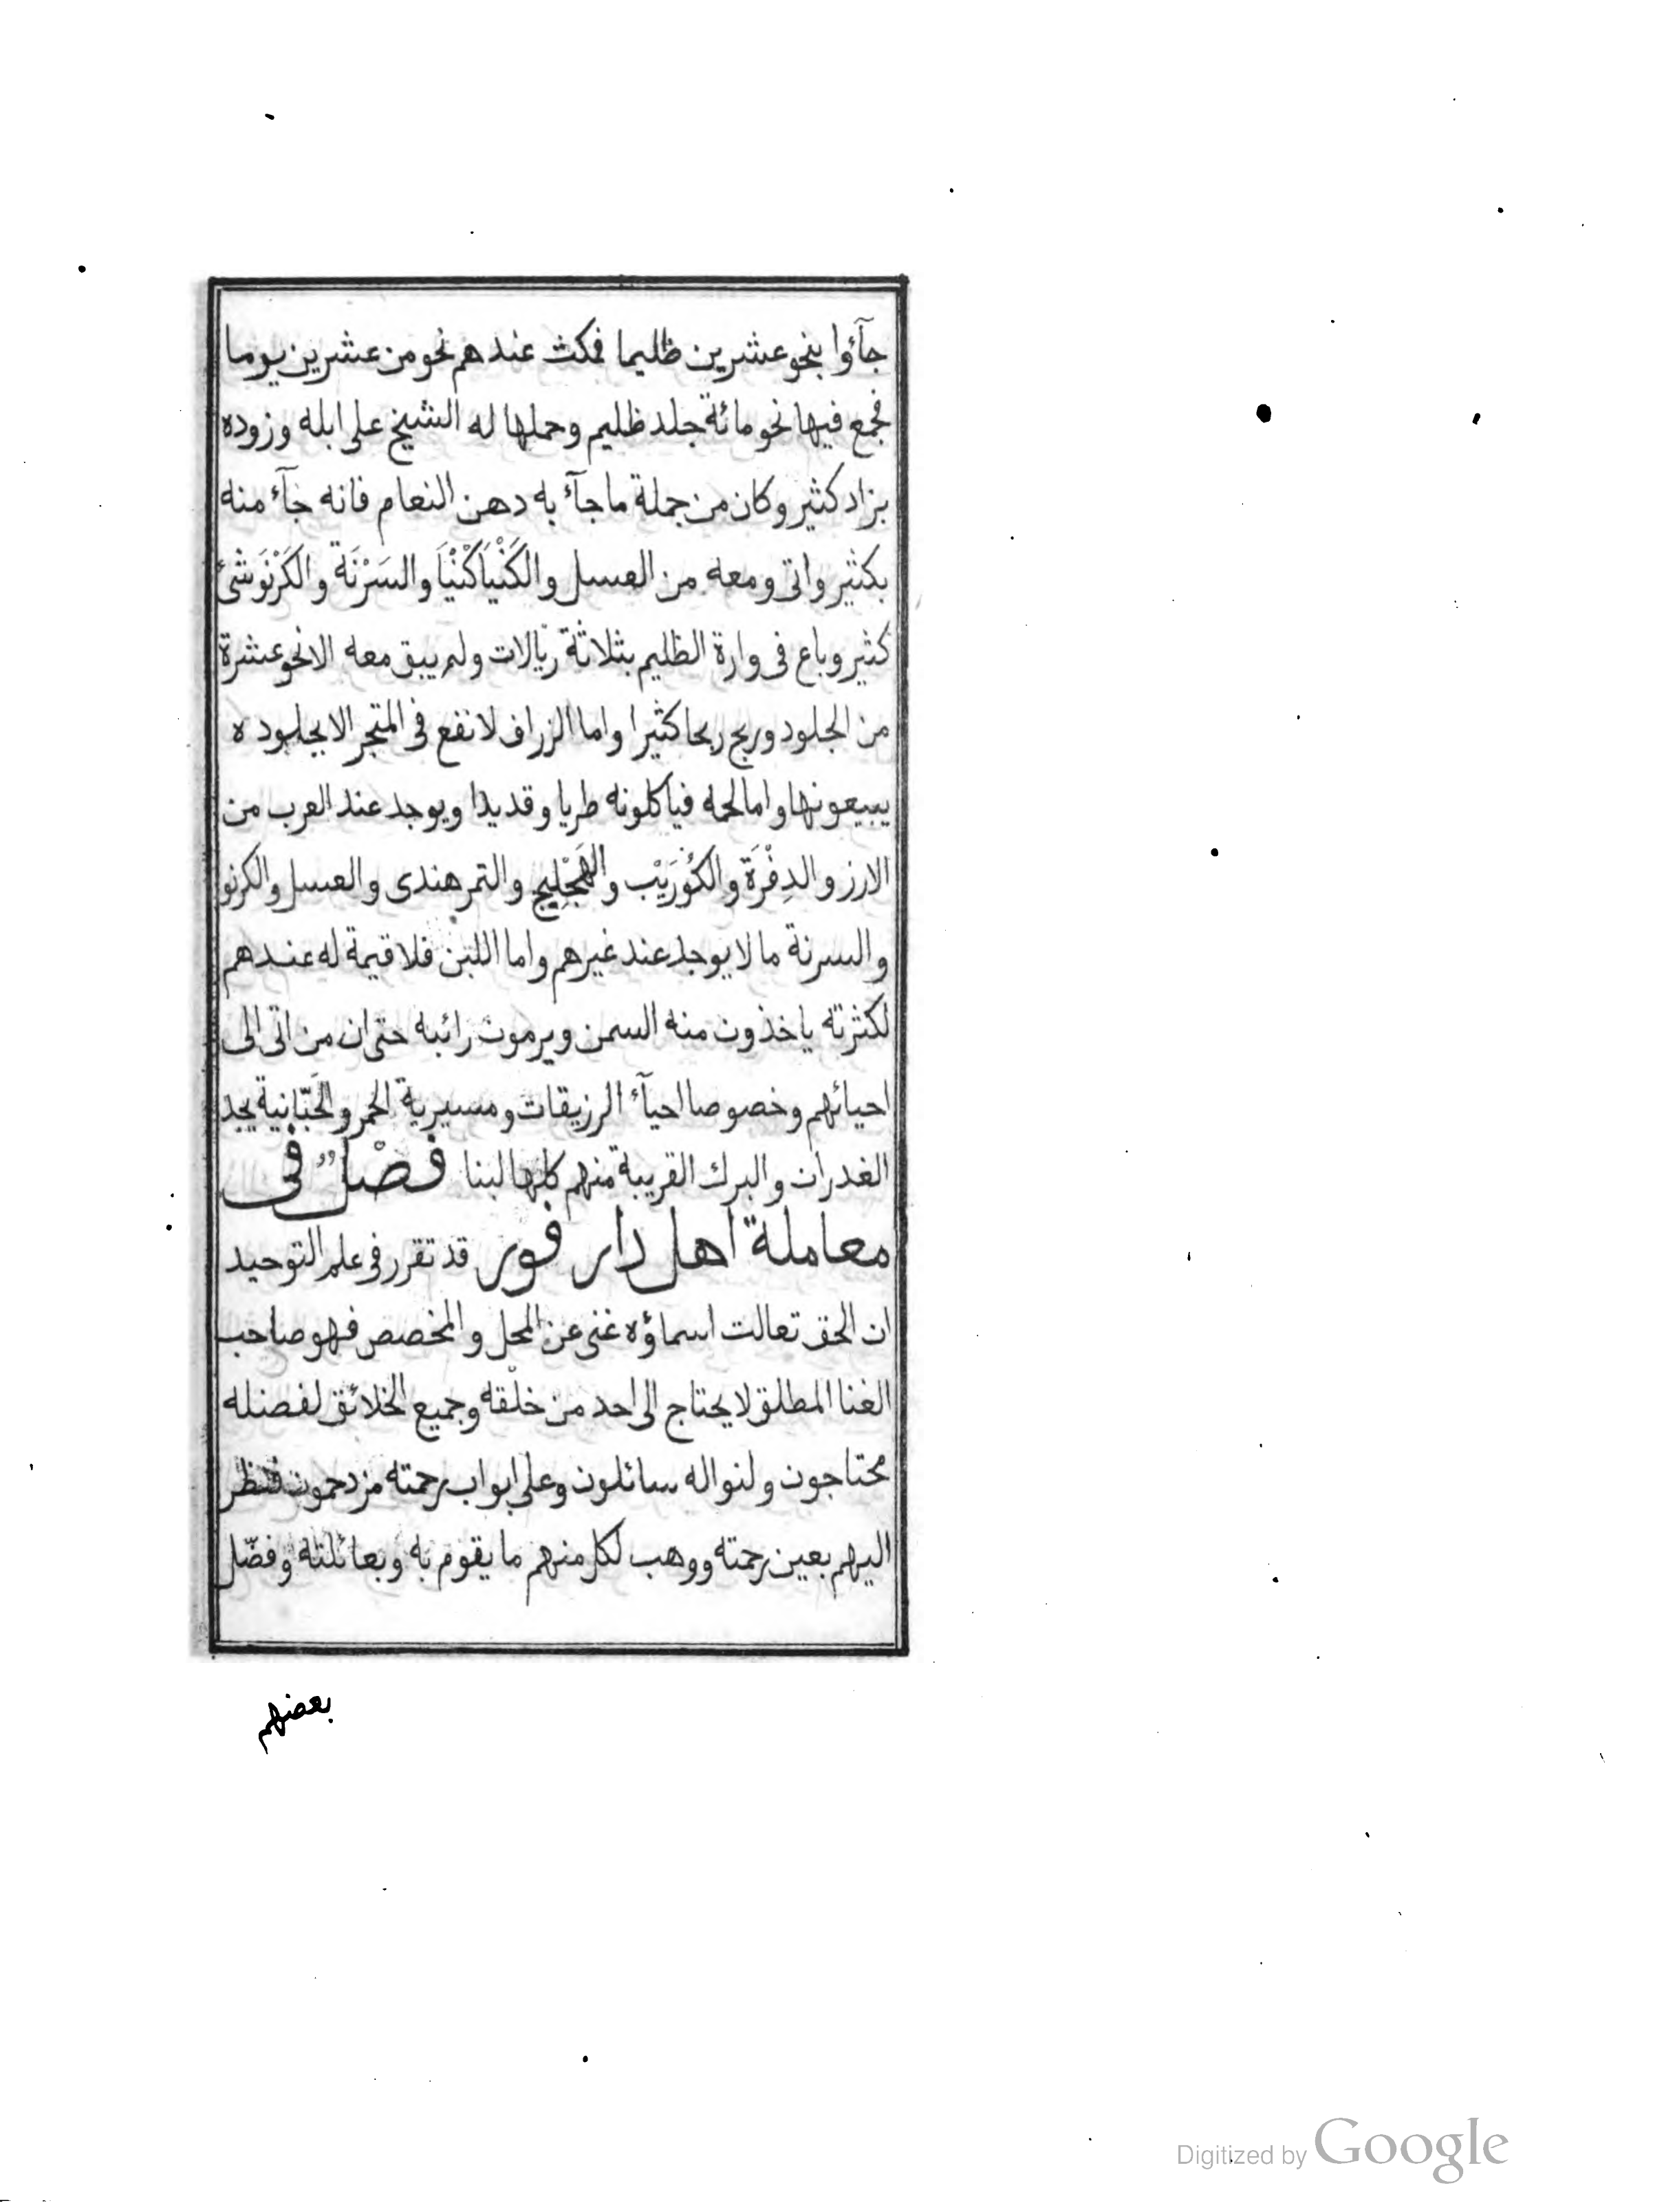 جآؤا بنحو عشرين ظليما فمكث عندهم نحو من عشرين يوما
فجمع فيها نحو مائة جلد ظليم وحملها له الشيخ على ابله وزوده
بزاد كثير وكان من جملة ما جآء به دهن النعام فانه جآء منه
بكثير واتى ومعه من العسل والكَنْيَاكَنْيَا والسَرْنَة والكَرْنَوْ شئ
كثير وباع فى وارة الظليم بثلاثة ريالات ولم يبق معه الا نحو عشرة
من الجلود وربح ربحا كثيرا واما الزراف لا نفع فى المتجر الا بجلوده
يبيعونها واما لحمه فياكلونه طريا وقديدا ويوجد عند العرب من
الارز والدِفْرَة والكُوْرَيْب والهَجْلِيج والتمر هندى والعسل والكرنو
والسرنة ما لا يوجد عند غيرهم واما اللبن فلا قيمة له عندهم
لكثرته ياخذون منه السمن ويرمون رائبه حتى ان من اتى الى
احيائهم وخصوصا احيآء الرزيقات ومسيرية الحمر والحَبّانية يجد
الغدران والبرك القريبة منهم كلها لبنا فصْلٌ فى
معاملة اهل دار فور قد تقرر فى علم التوحيد
ان الحق تعالت اسماؤه غنى عن المحل والمخصص فهو صاحب
الغنا المطلق لا يحتاج الى احد من خلْقه وجميع الخلائق لفضله
محتاجون ولنواله سائلون وعلى ابواب رحمته مزدحمون فنظر
اليهم بعين رحمته ووهب لكل منهم ما يقوم به وبعائلته وفضّل
بعضهم
Digitized by Google